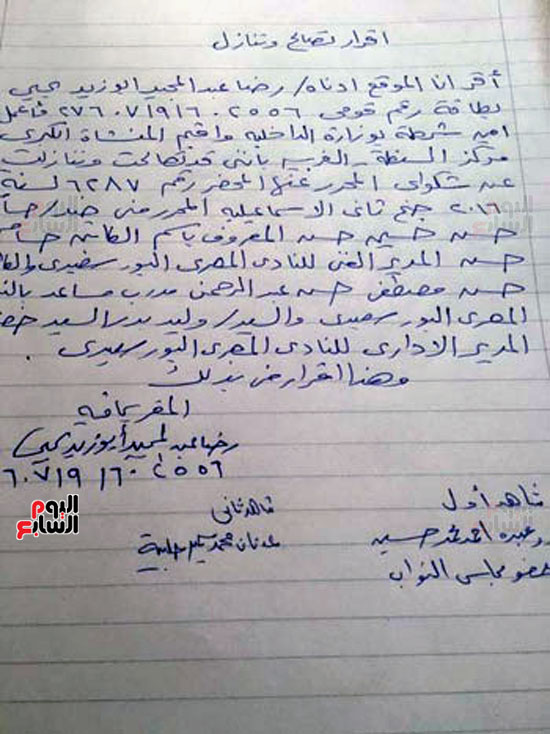 اقرار تصالح وتنازل
أقر انا الموقع ادناه / رضا عبد المجيد ابو زيد يحيى
بطاقة رقم قومى ٢٧٦٠٧١٩١٦٠٢٥٥٦
امين شرطة بوزارة الداخليه واقيم المنشاة الكبرى
مركز السنطة - الغربيه بأننى قد تصالحت وتنازلت
عن شكواى المحرر عنها المحضر رقم ٦٢٨٧ لسنة
٢٠١٦ جنح ثانى الاسماعيليه المحرر منى ضد / حسام
حسن حسين حسن المعروف باسم الكابتن حسام
حسن المدير الفنى للنادى المصرى البورسعيدى
حسن مصطفى حسن عبد الرحمن مدرب مساعد
المصرى البورسعيدى والسيد / وليد بدر السيد
المدير الادارى للنادى المصرى البورسعيدى .
وهذا اقرار منى بذلك
المقر بما فيه
رضا عبد المجيد أبو زيد يحيى
٦٠٧١٩١٦٠٢٥٥٦
شاهد أول
عبده احمد محمد حسين
عضو مجلس النواب
شاهد ثانى
عدنان محمد
اليوم السابع